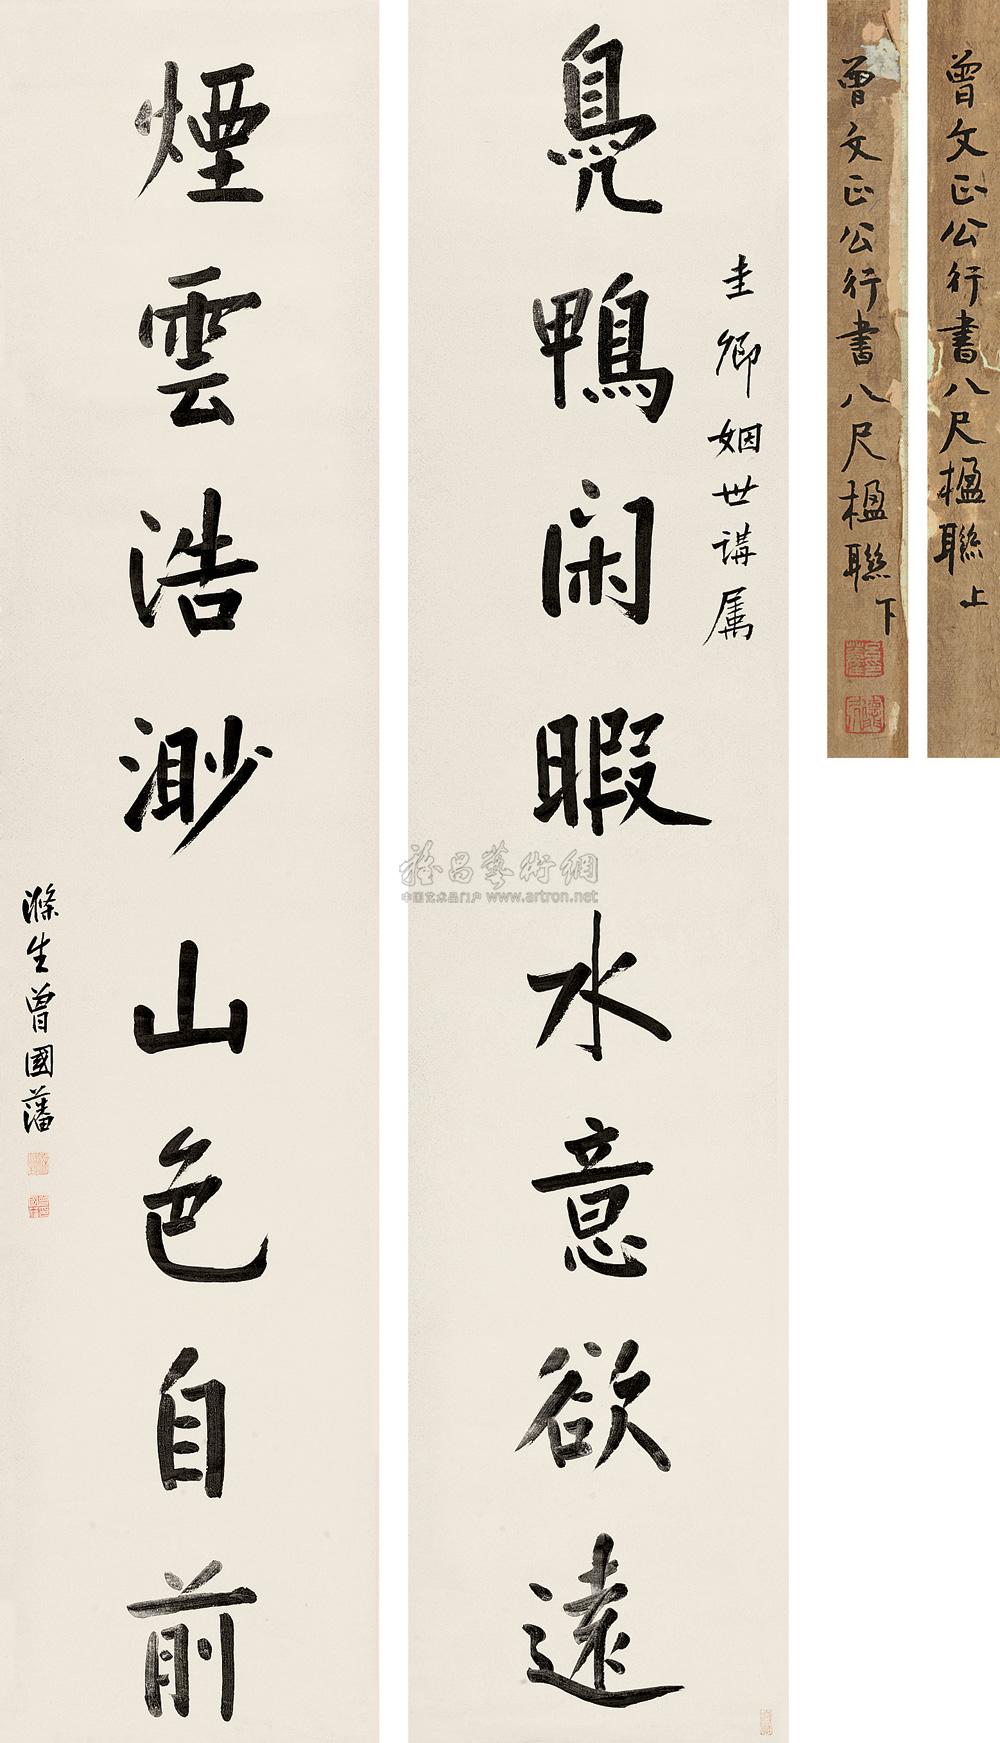 曾文正公行書八尺楹聯上
曾文正公行書八尺楹聯下
圭卿姻世講属
鳧鴨闲暇水意欲遠
煙雲浩渺山色自前
滌生曾國藩
雅昌藝術網
中国艺术品门户 www.artron.net